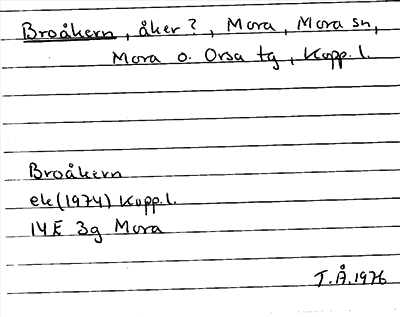 Broåkern, åker?, Mora, Mora sn,
Mora o. Orsa tg, Kopp. l.
Broåkern
ek (1974) Kopp.l.
14E 3g Mora
T.Å. 1976